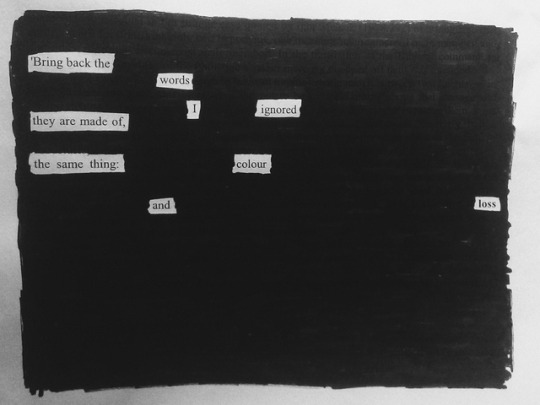 'Bring back the
words
I ignored
they are made of,
the same thing: colour
and loss